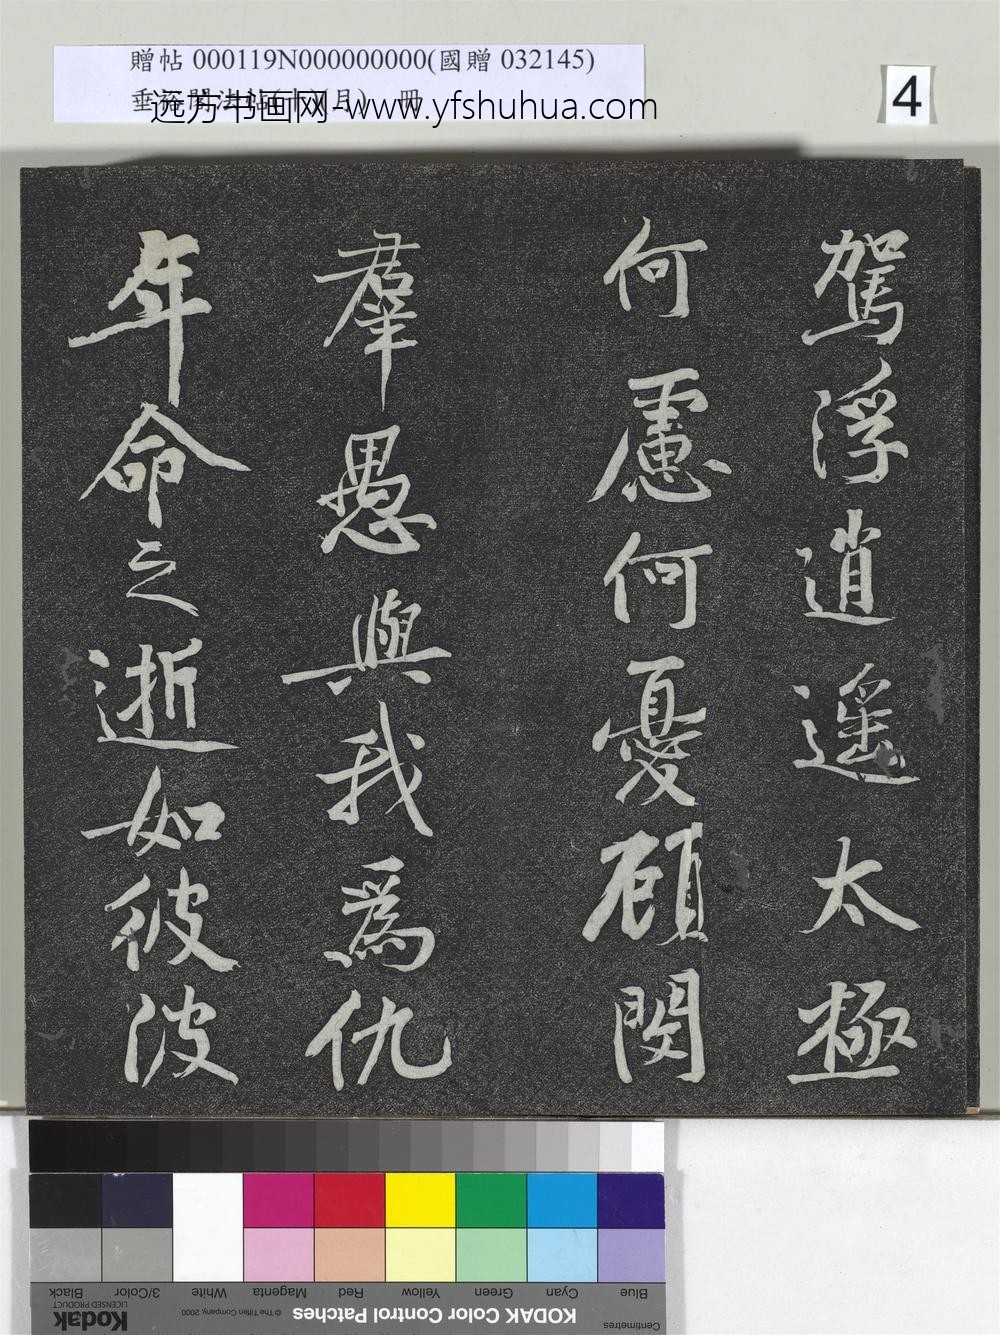 贈帖 000119N000000000(國贈 032145)
远方书画网-www.yfshuhua.com
4
駕浮逍遙太極
何慮何憂顧閔
羣愚與我爲仇
年命之逝如彼波
Blue
Cyan
Green
Yellow
Red
Magenta
White
3/Color
Black
Centimetres
KODAK Color Control Patches
© The Tiffen Company, 2000
Kodak
LICENSED PRODUCT